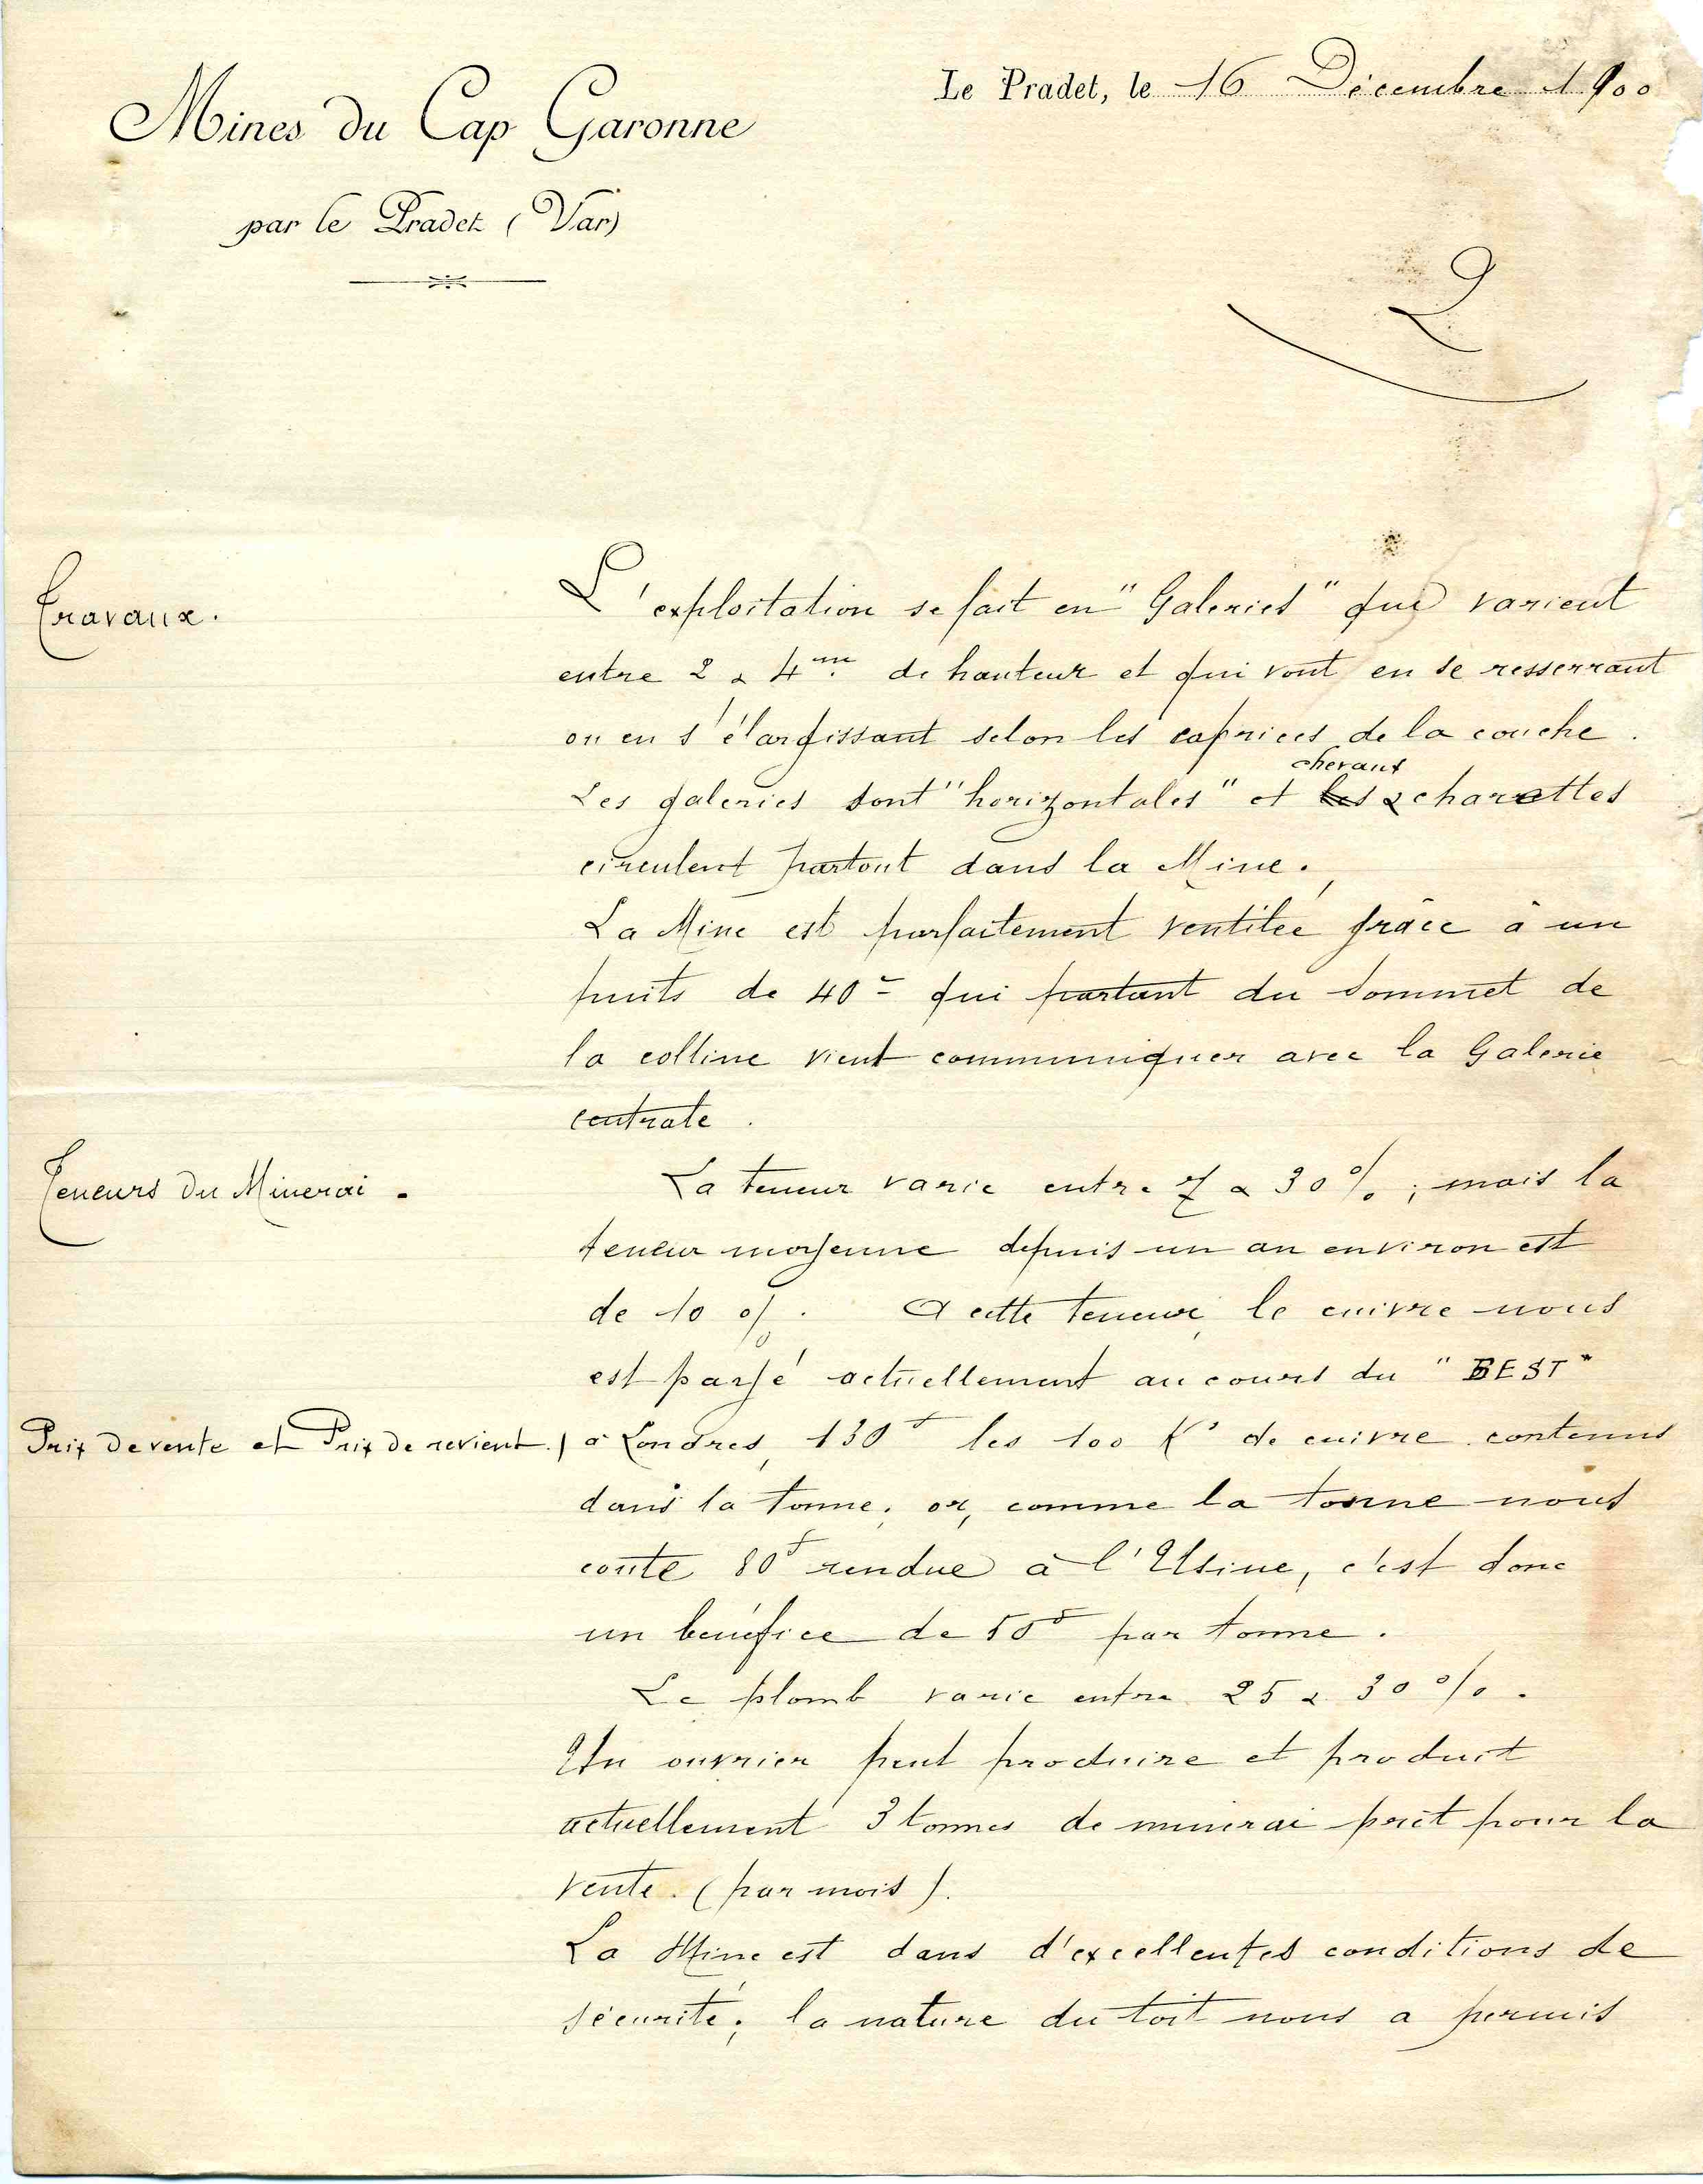 Mines du Cap Garonne
par le Pradet (Var)
Le Pradet, le 16 Décembre 1900
2
Travaux.
L'exploitation se fait en "Galeries" qui varient
entre 2 a 4m. de hauteur et qui vont en se resserrant
ou en s'élargissant selon les caprices de la couche.
chevaux
Les galeries sont "horizontales" et les & charettes
circulent partout dans la Mine.
La Mine est parfaitement ventilée, grâce à un
puits de 40m qui partant du sommet de
la colline vient communiquer avec la Galerie
centrale.
Teneurs du Minerai.
La teneur varie entre 7 a 30%; mais la
teneur moyenne depuis un an environ est
de 10 %. A cette teneur, le cuivre nous
est payé actuellement au cours du "BEST"
Prix de vente et Prix de revient.
a Londres, 130f les 100 Ks de cuivre contenus
dans la tonne; or, comme la tonne nous
coute 80f rendue à l'Usine, c'est donc
un bénéfice de 50f par tonne.
Le plomb varie entre 25 a 30%.
Un ouvrier peut produire et produit
actuellement 3 tonnes de minerai pret pour la
vente. (par mois).
La Mine est dans d'excellentes conditions de
sécurité; la nature du toit nous a permis